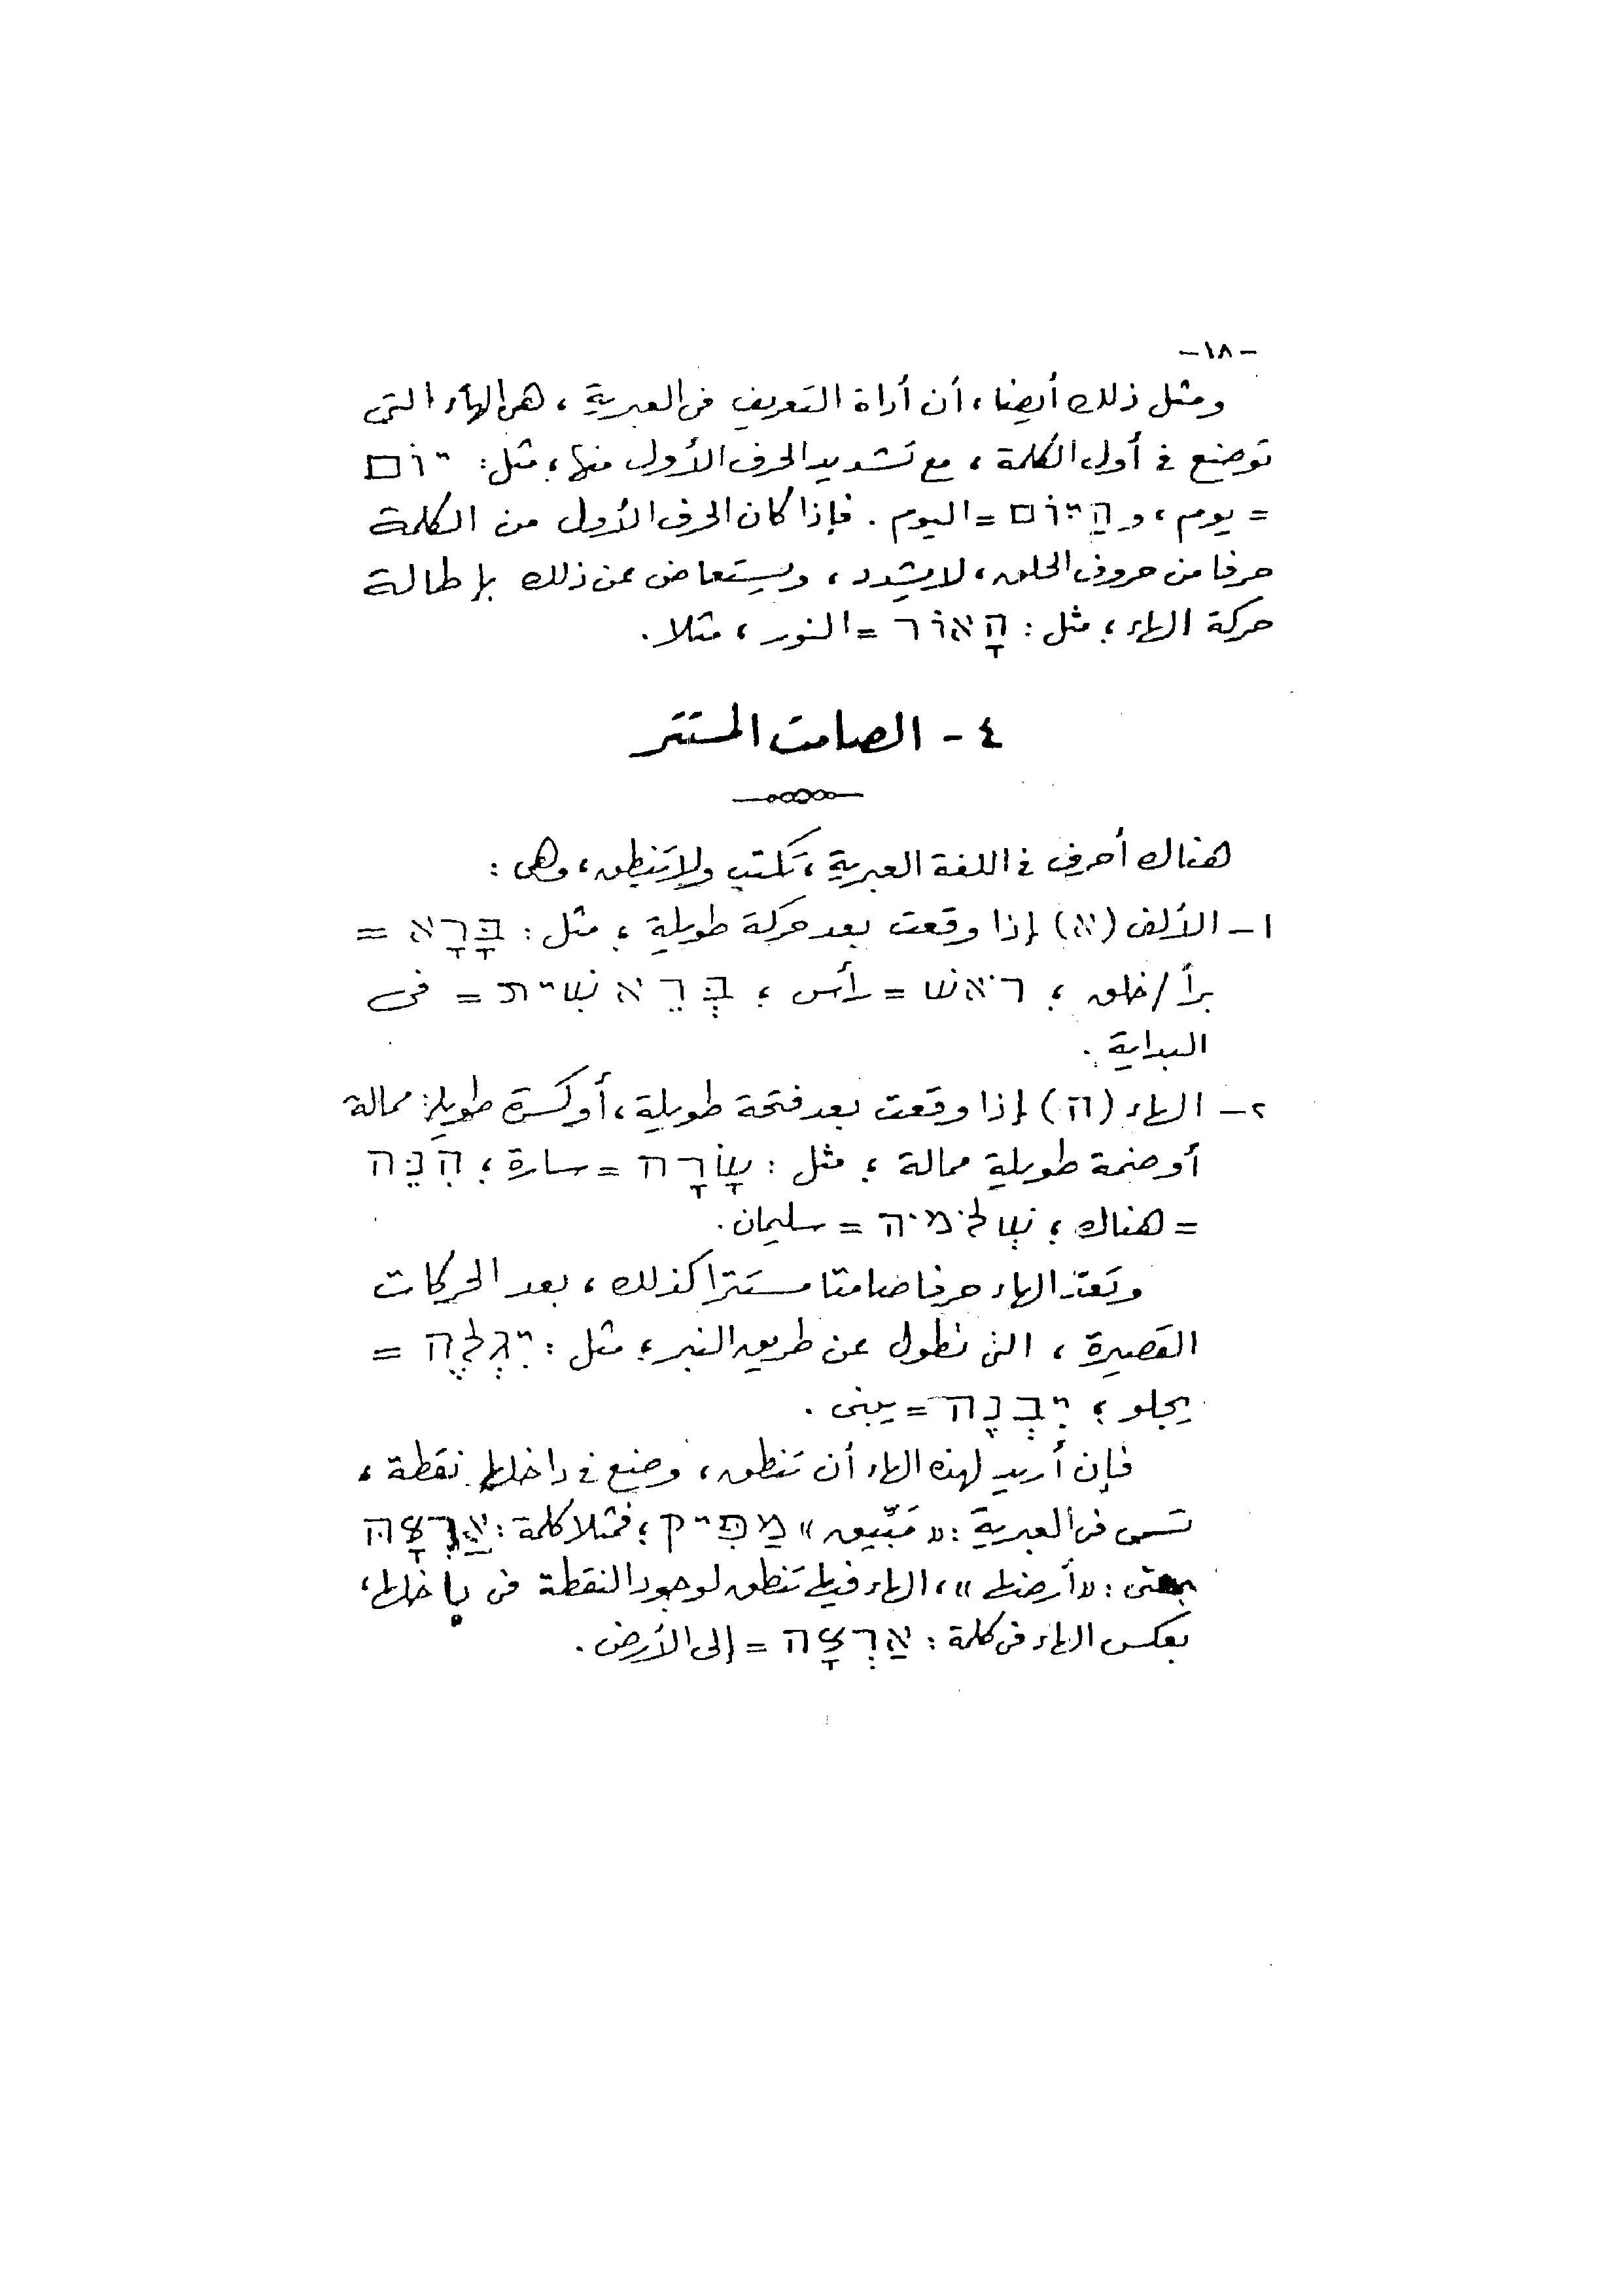 -١٨-
ومثل ذلك أيضا، أن أداة التعريف فى العبرية، هى الهاء التى
توضع فى أول الكلمة، مع تشديد الحرف الأول منها؛ مثل: יוֹם
= يوم، و הַיּוֹם = اليوم. فإذا كان الحرف الأول من الكلمة
حرفا من حروف الحلق، لا يشدد، ويستعاض عن ذلك بإطالة
حركة الهاء؛ مثل: הָאוֹר = النور، مثلا.
٤ - الصامت المستتر
هناك أحرف فى اللغة العبرية، تكتب ولا تنطق، وهى:
١- الألف (א) إذا وقعت بعد حركة طويلة؛ مثل: בָּרָא =
برأ/خلق؛ רֹאשׁ = رأس؛ בְּרֵאשִׁית = فى
البداية.
٢- الهاء (ה) إذا وقعت بعد فتحة طويلة، أو كسرة طويلة ممالة
أو ضمة طويلة ممالة؛ مثل: שָׂרָה = سارة؛ הִנֵּה
= هناك؛ שְׁלֹמֹה = سليمان.
وتعدّ الهاء حرفا صامتا مستترا كذلك، بعد الحركات
القصيرة، التى تطول عن طريق النبر؛ مثل: יִגְלֶה =
يجلو؛ יִבְנֶה = يبنى.
فإن أريد لهذه الهاء أن تنطق، وضع فى داخلها نقطة،
تسمى فى العبرية: «مَبِّيق» מַפִּיק؛ فمثلا كلمة: אַרְצָהּ
بمعنى: «أرضها»، الهاء فيها تنطق لوجود النقطة فى داخلها،
بعكس الهاء فى كلمة: אַרְצָה = إلى الأرض.